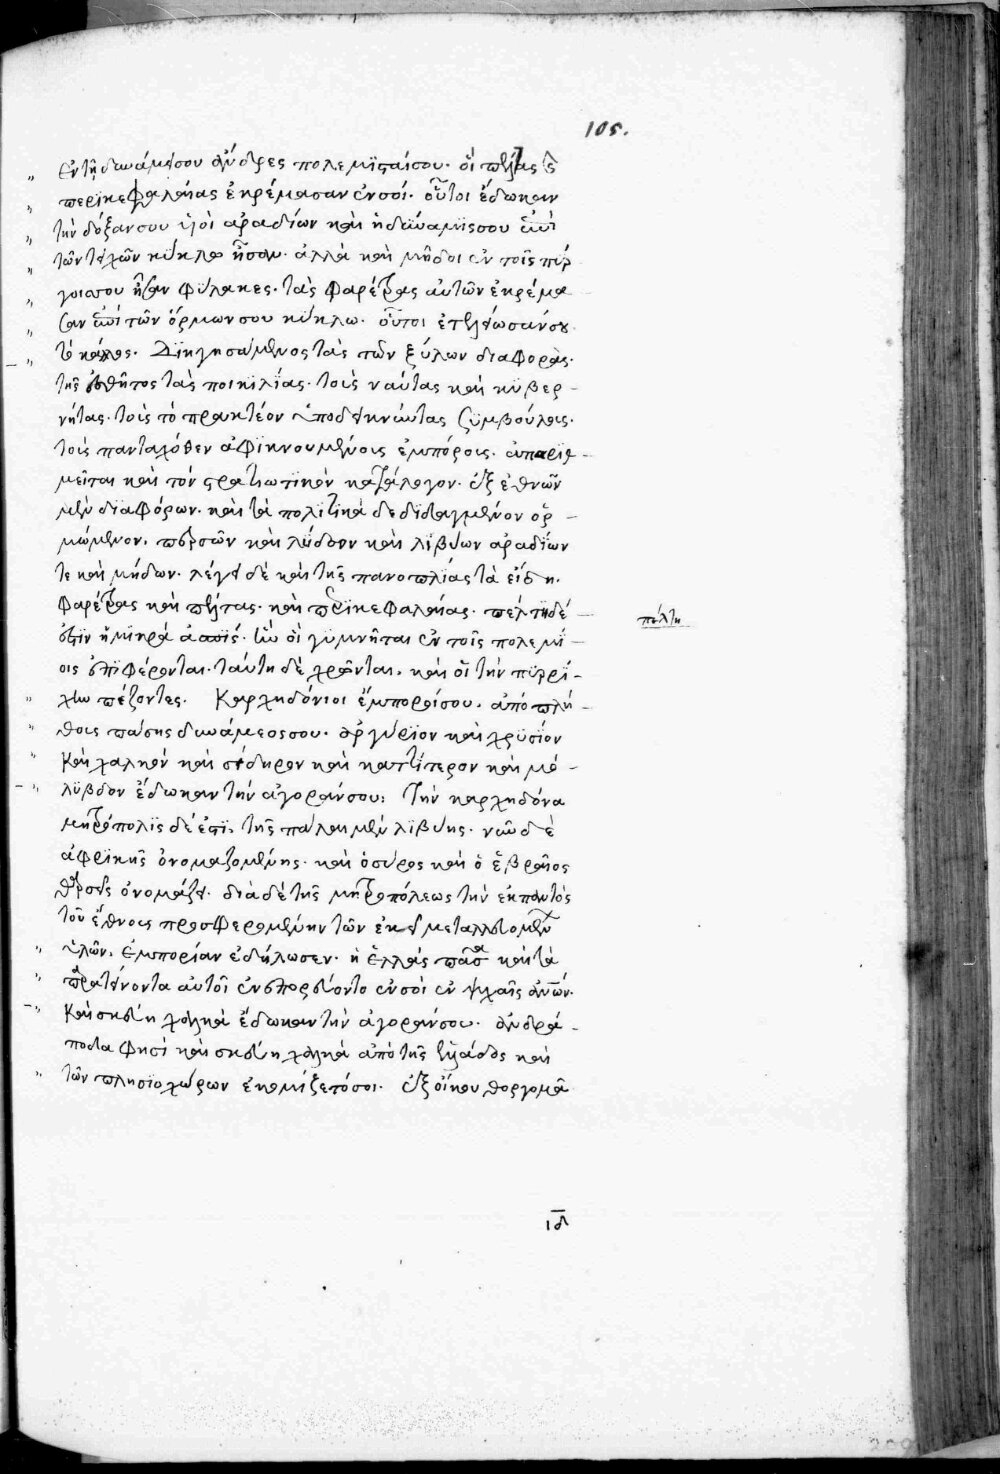 105.
ἐν τῇ δυνάμει σου ἄνδρες πολεμισταί σου· οἳ πέλτας καὶ
περικεφαλαίας ἐκρέμασαν ἐν σοί· οὗτοι ἔδωκαν
τὴν δόξαν σου υἱοὶ ἀραδίων καὶ ἡ δύναμίς σου ἐπὶ
τῶν τειχῶν κύκλῳ ἦσαν· ἀλλὰ καὶ μῆδοι ἐν τοῖς πύρ-
γοις σου ἦσαν φύλακες· τὰς φαρέτρας αὐτῶν ἐκρέμα-
σαν ἐπὶ τῶν ὅρμων σου κύκλῳ· οὗτοι ἐτελείωσάν σου
τὸ κάλλος· Διηγησάμενος τὰς τῶν ξύλων διαφοράς·
τῆς ἐσθῆτος τὰς ποικιλίας· τοὺς ναύτας καὶ κυβερ-
νήτας· τοὺς τὸ πρακτέον ὑποδεικνύντας συμβούλους·
τοὺς πανταχόθεν ἀφικνουμένους ἐμπόρους· ἀπαριθ-
μεῖται καὶ τὸν στρατιωτικὸν κατάλογον· ἐξ ἐθνῶν
μὲν διαφόρων· κατὰ πολιτικὰ δὲ διδαγμένον ὁρ-
μώμενον· περσῶν καὶ λύδων καὶ λιβύων ἀραδίων
τε καὶ μήδων· λέγει δὲ καὶ τῆς πανοπλίας τὰ εἴδη·
φαρέτρας καὶ πέλτας· καὶ περικεφαλαίας· πέλτη δέ
ἐστιν ἡ μικρὰ ἀσπίς· ᾗ οἱ γυμνῆται ἐν τοῖς πολεμί-
οις ἐπιφέρονται· ταύτῃ δὲ χρῶνται, καὶ οἱ τὴν πυρρί-
χην παίζοντες· Καρχηδόνιοι ἔμποροί σου· ἀπὸ πλή-
θους πάσης δυνάμεώς σου· ἀργύριον καὶ χρυσίον
καὶ χαλκὸν καὶ σίδηρον καὶ κασσίτερον καὶ μό-
λυβδον ἔδωκαν τὴν ἀγοράν σου: Τὴν καρχηδόνα
μητρόπολις δέ ἐστι, τῆς πάλαι μὲν λιβύης· νῦν δὲ
ἀφρικῆς ὀνομαζομένης· καὶ ὁ σύρος καὶ ὁ ἑβραῖος
θαρσεῖς ὀνομάζει· διὰ δὲ τῆς μητροπόλεως τὴν ἐκ παντὸς
τοῦ ἔθνους προσφερομένην τῶν ἐκεῖ μεταλλευομένων
ὑλῶν, ἐμπορίαν ἐδήλωσεν· ἡ ἑλλὰς πᾶσα καὶ τὰ
παρατείνοντα αὐτοὶ ἐνεπορεύοντό ἐν σοὶ ἐν ψυχαῖς ἀνθρώπων·
καὶ σκεύη χαλκᾶ ἔδωκαν τὴν ἀγοράν σου· ἀνδρά-
ποδα φησὶ καὶ σκεύη χαλκᾶ ἀπὸ τῆς ἑλλάδος καὶ
τῶν πλησιοχώρων ἐκομίζετό σοι· ἐξ οἴκου θοργομᾶ
πέλτη
ιδ